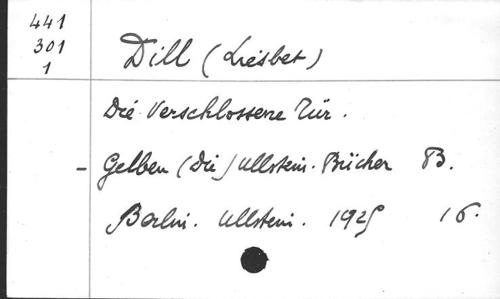 441
301
1
Dill (Liesbet)
Die Verschlossene Tür.
- Gelben (Die) Ullstein-Bücher B.
Berlin. Ullstein. 1925 16.